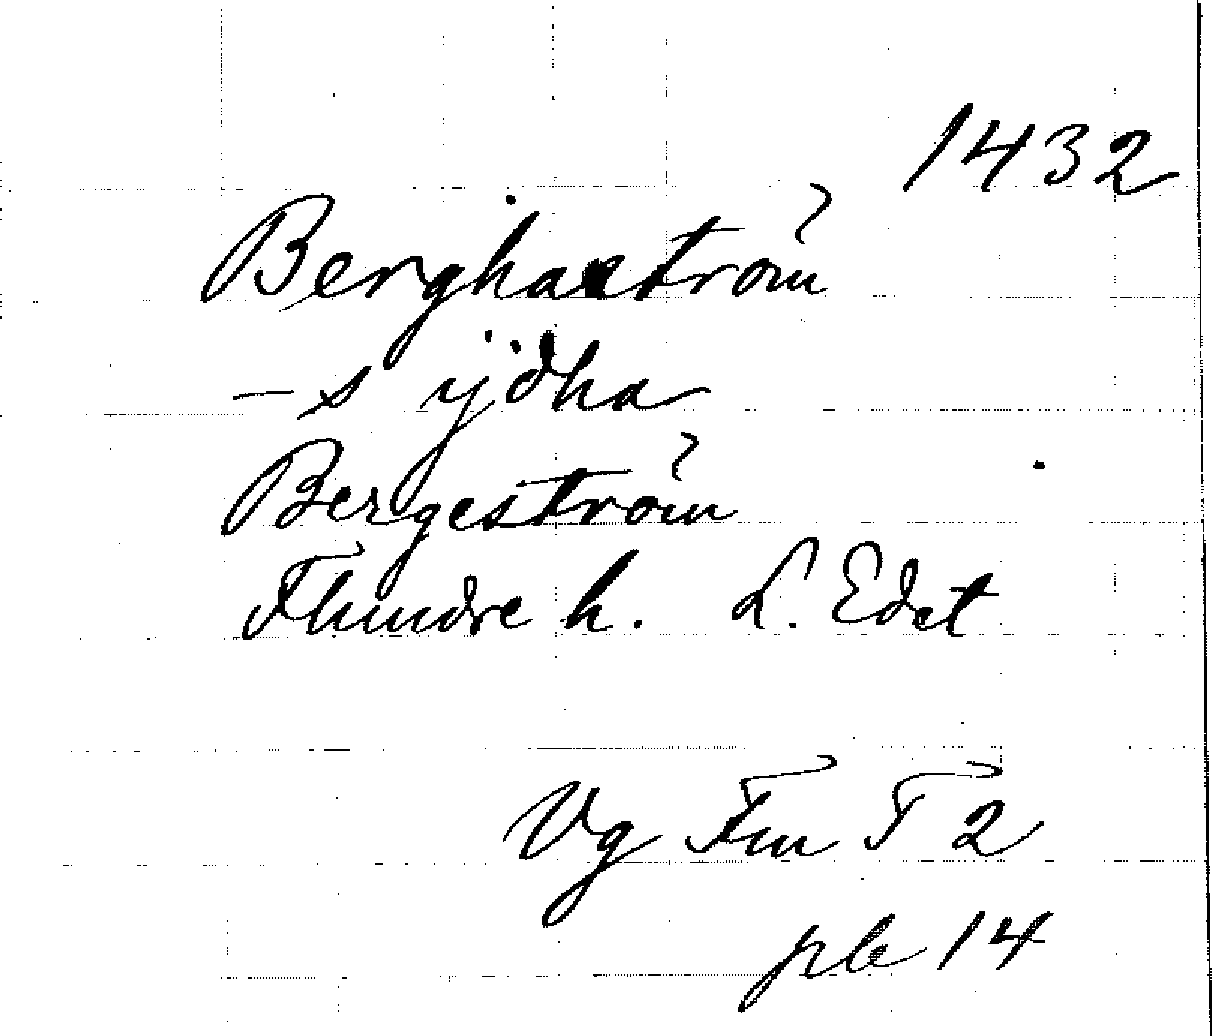 1432
Berghaström
-s ÿdha
Bergeström
Flundre h. L. Edet
Vg Fm T 2
pb 14